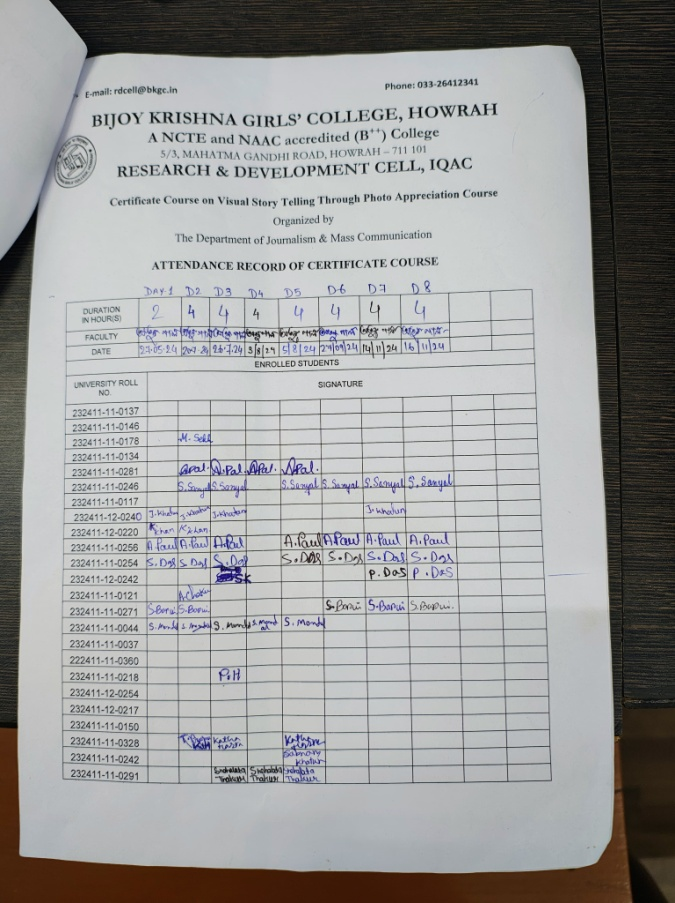 E-mail: rdcell@bkgc.in Phone: 033-26412341
BIJOY KRISHNA GIRLS' COLLEGE, HOWRAH
A NCTE and NAAC accredited (B++) College
5/3, MAHATMA GANDHI ROAD, HOWRAH – 711 101
RESEARCH & DEVELOPMENT CELL, IQAC
Certificate Course on Visual Story Telling Through Photo Appreciation Course
Organized by
The Department of Journalism & Mass Communication
ATTENDANCE RECORD OF CERTIFICATE COURSE
DAY-1 D2 D3 D4 D5 D6 D7 D8
DURATION IN HOUR(S) 2 4 4 4 4 4 4 4
FACULTY
DATE 27.05.24 26.7.24 3/8/24 5/8/24 27/09/24 14/11/24 16/11/24
ENROLLED STUDENTS
UNIVERSITY ROLL NO. SIGNATURE
232411-11-0137
232411-11-0146
232411-11-0178
232411-11-0134
232411-11-0281 A.Pal. A.Pal. A.Pal. A.Pal.
232411-11-0246 S.Sanyal S.Sanyal S.Sanyal S.Sanyal S.Sanyal S.Sanyal
232411-11-0117
232411-12-0240 J.Khatun J.Khatun J.Khatun
232411-12-0220 Khan Khan
232411-11-0256 A.Paul A.Paul A.Paul A.Paul A.Paul A.Paul A.Paul
232411-11-0254 S.Das S.Das S.Das S.Das S.Das S.Das S.Das
232411-12-0242 P.Das P.Das
232411-11-0121
232411-11-0271 S.Barui S.Barui S.Barui S.Barui S.Barui.
232411-11-0044 S.Mondal S.Mondal S.Mondal S.Mondal S.Mondal
232411-11-0037
222411-11-0360
232411-11-0218 P.H
232411-12-0254
232411-12-0217
232411-11-0150
232411-11-0328
232411-11-0242 Khatun
232411-11-0291 Thakur Thakur Thakur